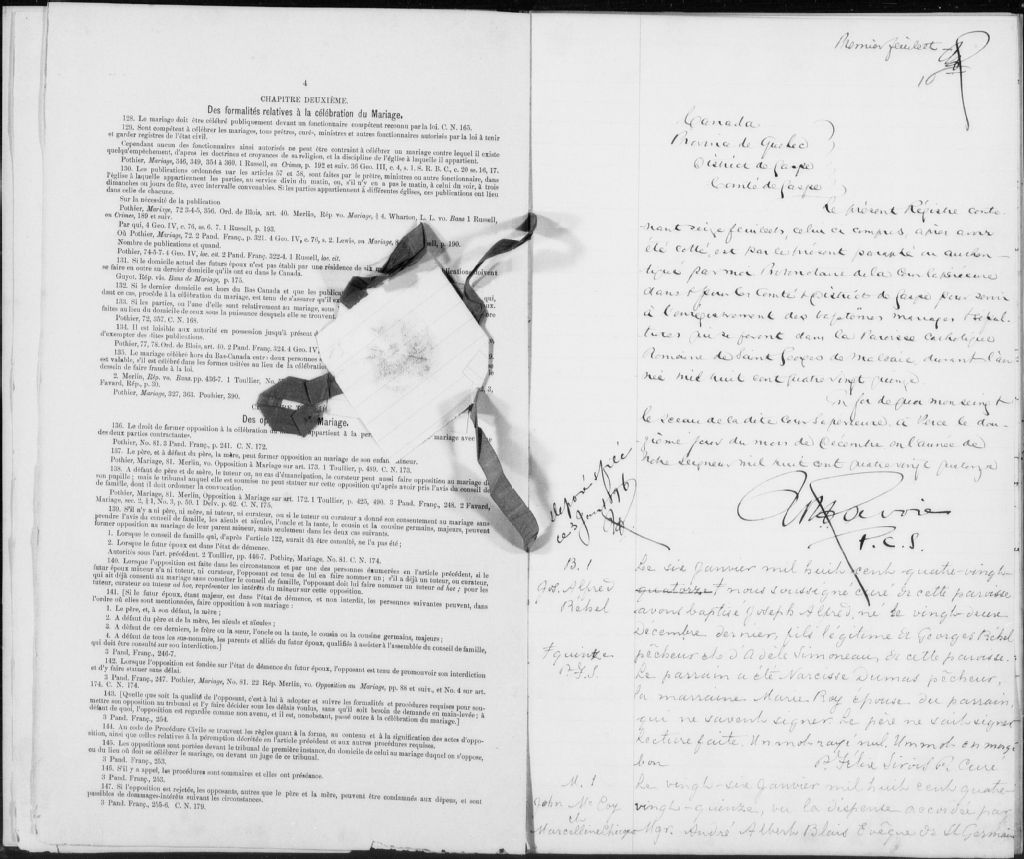 4
CHAPITRE DEUXIÈME.
Des formalités relatives à la célébration du Mariage.
128. Le mariage doit être célébré publiquement devant un fonctionnaire compétent reconnu par la loi. C. N. 165.
129. Sont compétent à célébrer les mariages, tous prêtres, curés, ministres et autres fonctionnaires autorisés par la loi à tenir
et garder registres de l'état civil.
Cependant aucun des fonctionnaires ainsi autorisés ne peut être contraint à célébrer un mariage contre lequel il existe
quelqu'empêchement, d'après les doctrines et croyances de sa religion, et la discipline de l'église à laquelle il appartient.
Pothier, Mariage, 346, 349, 354 à 360. 1 Russell, on Crimes, p. 192 et suiv. 36 Geo. III, c. 4, s. 1. S. R. B. C., c. 20 ss. 16, 17.
130. Les publications ordonnées par les articles 57 et 58, sont faites par le prêtre, ministre ou autre fonctionnaire, dans
l'église à laquelle appartiennent les parties, au service divin du matin, ou, s'il n'y en a pas le matin, à celui du soir, à trois
dimanches ou jours de fête, avec intervalle convenables. Si les parties appartiennent à différentes églises, ces publications ont lieu
dans celle de chacune.
Sur la nécessité de la publication
Pothier, Mariage, 72 3-4-5, 356. Ord. de Blois, art. 40. Merlin, Rép vo. Mariage, § 4. Wharton, L. L. vo. Bans 1 Russell,
on Crimes, 189 et suiv.
Par qui, 4 Geo. IV, c. 76, ss. 6. 7. 1 Russell, p. 193.
Où Pothier, Mariage, 72. 2 Pand. Franç., p. 321. 4 Geo. IV, c. 76, s. 2. Lewis, on Mariage, ssell, p. 190.
Nombre de publications et quand.
Pothier, 74-5-7. 4 Geo. IV, loc. cit. 2 Pand. Franç. 322-4. 1 Russell, loc. cit.
131. Si le domicile actuel des futurs époux n'est pas établi par une résidence de six m publications doivent
se faire en outre au dernier domicile qu'ils ont eu dans le Canada.
Guyot. Rép. vis. Bans de Mariage, p. 175.
132. Si le dernier domicile est hors du Bas Canada et que les public qui,
dans ce cas, procède à la célébration du mariage, est tenu de s'assurer qu'il ex
133. Si les parties, ou l'une d'elle sont relativement au mariage, sous
faites au lieu du domicile de ceux sous la puissance desquels elle se trouvent
Pothier, 72, 357. C. N. 168.
134. Il est loisible aux autorité en possession jusqu'à présent
d'exempter des dites publications.
Pothier, 77, 78. Ord. de Blois, art. 40. 2 Pand. Franç. 324. 4 Geo. IV,
135. Le mariage célébré hors du Bas-Canada entre deux personnes s
est valable, s'il est célébré dans les formes usitées au lieu de la célébration
dessein de faire fraude à la loi.
2. Merlin, Rép. vo. Bans. pp. 436-7. 1 Toullier, No.
Favard, Rép., p. 30.
Pothier, Mariage, 327, 363. Pouhier, 390.
Des op Mariage.
136. Le droit de former opposition à la célébration du appartient à la per mariage avec
des deux parties contractantes.
Pothier, No. 81. 3 Pand. Franç., p. 241. C. N. 172.
137. Le père, et à défaut du père, la mère, peut former opposition au mariage de son enfan ineur.
Pothier, Mariage, 81. Merlin, vo. Opposition à Mariage sur art. 173. 1 Toullier, p. 489. C. N. 173.
138. A défaut de père et de mère, le tuteur ou, au cas d'émancipation, le curateur peut aussi faire opposition au mariage de
son pupille; mais le tribunal auquel elle est soumise ne peut statuer sur cette opposition qu'après avoir pris l'avis du conseil de
famille, dont il doit ordonner la convocation.
Pothier, Mariage, 81. Merlin, Opposition à Mariage sur art. 172. 1 Toullier, p. 425, 490. 3 Pand. Franç., 248. 2 Favard,
Mariage, sec. 2, § 1, No. 3, p. 59. 1 Delv. p. 62. C. N. 175.
139. S'il n'y a ni père, ni mère, ni tuteur, ni curateur, ou si le tuteur ou curateur a donné son consentement au mariage sans
prendre l'avis du conseil de famille, les aïeuls et aïeules, l'oncle et la tante, le cousin et la cousine germains, majeurs, peuvent
former opposition au mariage de leur parent mineur, mais seulement dans les deux cas suivants.
1. Lorsque le conseil de famille qui, d'après l'article 122, aurait dû être consulté, ne l'a pas été;
2. Lorsque le futur époux est dans l'état de démence.
Autorités sous l'art. précédent. 2 Toullier, pp. 446-7. Pothier, Mariage, No. 81. C. N. 174.
140. Lorsque l'opposition est faite dans les circonstances et par une des personnes énumérées en l'article précédent, si le
futur époux mineur n'a ni tuteur, ni curateur, l'opposant est tenu de lui en faire nommer un; s'il a déjà un tuteur, ou curateur,
qui ait déjà consenti au mariage sans consulter le conseil de famille, l'opposant doit lui faire nommer un tuteur ad hoc; pour les
tuteur, curateur ou tuteur ad hoc, représenter les intérêts du mineur sur cette opposition.
141. [Si le futur époux, étant majeur, est dans l'état de démence, et non interdit, les personnes suivantes peuvent, dans
l'ordre où elles sont mentionnées, faire opposition à son mariage :
1. Le père, et, à son défaut, la mère;
2. A défaut du père et de la mère, les aïeuls et aïeules;
3. A défaut de ces derniers, le frère ou la sœur, l'oncle ou la tante, le cousin ou la cousine germains, majeurs;
4. A défaut de tous les sus-nommés, les parents et alliés du futur époux, qualifiés à assister à l'assemblée du conseil de famille,
qui doit être consulté sur son interdiction.]
3 Pand. Franç., 246-7.
142. Lorsque l'opposition est fondée sur l'état de démence du futur époux, l'opposant est tenu de promouvoir son interdiction
et d'y faire statuer sans délai.
3 Pand. Franç., 247. Pothier, Mariage, No. 81. 22 Rép. Merlin, vo. Opposition au Mariage, pp. 88 et suiv., et No. 4 sur art.
174. C. N. 174.
143. [Quelque que soit la qualité de l'opposant, c'est à lui à adopter et suivre les formalités et procédures requises pour sou-
mettre son opposition au tribunal et l'y faire décider sous les délais voulus, sans qu'il soit besoin de demande en main-levée; à
défaut de quoi, l'opposition est regardée comme non avenue, et il est, nonobstant, passé outre à la célébration du mariage.]
3 Pand. Franç., 254.
144. Au code de Procédure Civile se trouvent les règles quant à la forme, au contenu et à la signification des actes d'oppo-
sition, ainsi que celles relatives à la péremption décrétée en l'article précédent et aux autres procédures requises.
145. Les oppositions sont portées devant le tribunal de première instance, du domicile de celui au mariage duquel on s'oppose,
ou du lieu où doit se célébrer le mariage, ou devant un juge de ce tribunal.
3 Pand. Franç., 253.
146. S'il y a appel, les procédures sont sommaires et elles ont préséance.
3 Pand. Franç., 253.
147. Si l'opposition est rejetée, les opposants, autres que le père et la mère, peuvent être condamnés aux dépens, et sont
passibles de dommages-intérêts suivant les circonstances.
3 Pand. Franç., 255-6. C. N. 179.
Premier feuillet
16
Canada
Province de Quebec
District de Gaspé
Comté de Gaspé
Le présent Régistre conte-
nant seize feuillets, celui ci compris, après avoir
été cotté, est par le présent paraphé ou authen-
tiqué par moi Protonotaire de la Cour Supérieure
dans & pour les Comté & district de Gaspé pour servir
à l'enregistrement des baptêmes mariages & sépul-
tures qui se feront dans la Paroisse Catholique
Romaine de Saint Georges de Malbaie, durant l'an-
née mil huit cent quatre vingt quinze
En foi de quoi mon seing &
le sceau de la dite Cour Supérieure à Percé le dou-
zième jour du mois de Décembre en l'année de
Notre Seigneur mil huit cent quatre vingt quatorze
P. C. S.
déposé
ce 3 Janv 1896
B. 1
Jos. Alfred
Réhel
≠ quinze
P.F.S.
Le six Janvier mil huit cent quatre-vingt-
quatorze ≠ nous soussigné curé de cette paroisse
avons baptisé Joseph Alfred, né le vingt-deux
Décembre dernier, fils légitime de Georges Réhel
pêcheur et d'Adèle Simoneau, de cette paroisse.
Le parrain a été Narcisse Dumas pêcheur,
la marraine Marie Roy épouse du parrain,
qui ne savent signer. Le père ne sait signer
Lecture faite. Un mot rayé nul. Un mot en marge
bon P. Félix Sirois Ptre Curé
M. 1
John Mc Coy
et
Marcelline Chicoyne
Le vingt-six Janvier mil huit cent quatre-
vingt-quinze, vu la dispense accordée par
Mgr. André Albert Blais Evêque de St Germain